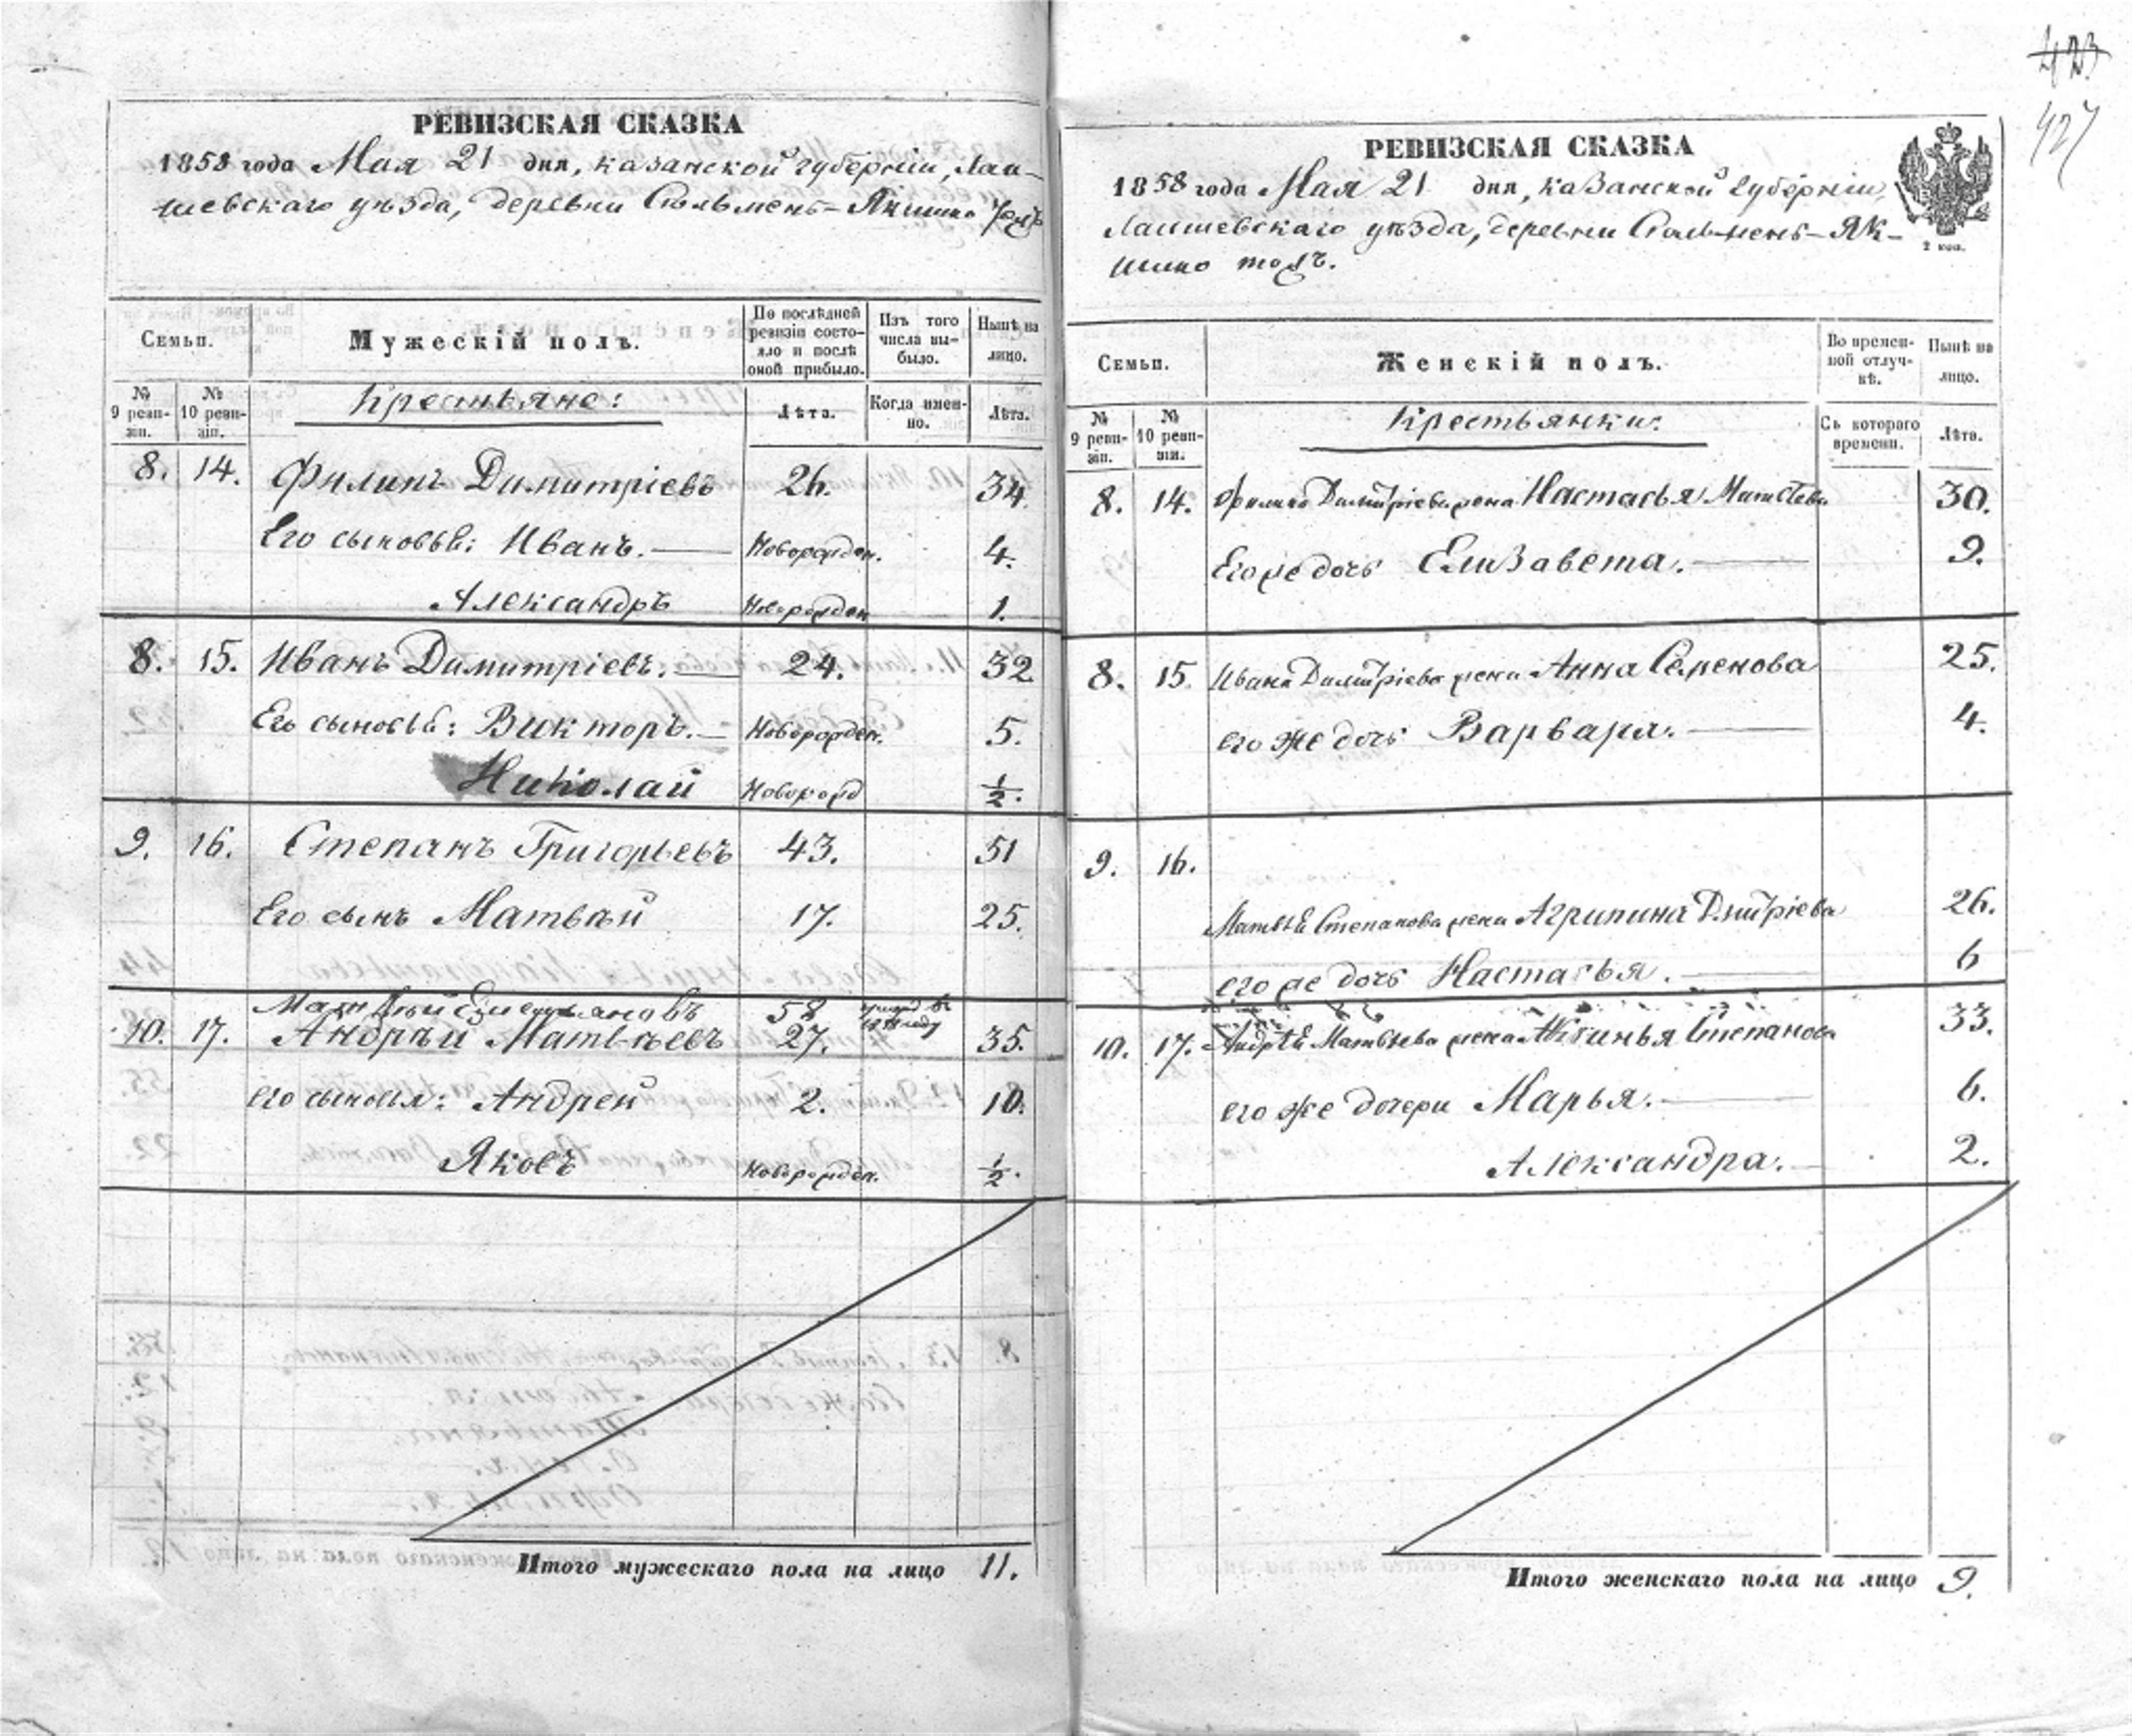 423
427
РЕВИЗСКАЯ СКАЗКА
1858 года Мая 21 дня, Казанской губерніи, Лаи-
шевскаго уѣзда, деревни
Семьи.
Мужескій полъ.
По послѣдней ревизіи состо-яло и послѣ оной прибыло.
Изъ того числа вы-было.
Нынѣ на лицо.
№ 9 реви-зіи.
№ 10 реви-зіи.
Крестьяне:
Лѣта.
Когда имен-но.
Лѣта.
8. 14. Филипъ Димитріевъ 26. 34.
Его сыновья: Иванъ. Новорожден. 4.
Александръ Новорожден 1.
8. 15. Иванъ Димитріевъ. 24. 32
Его сыновья: Викторъ. Новорожден. 5.
Николай Новорожд ½.
9. 16. Степанъ Григорьевъ 43. 51
Его сынъ Матвѣй 17. 25.
Матвѣй Емельяновъ 58
10. 17. Андрѣй Матвѣевъ 27. 35.
его сыновья: Андрей 2. 10.
Яковъ Новорожден. ½.
Итого мужескаго пола на лицо 11.
РЕВИЗСКАЯ СКАЗКА
1858 года Мая 21 дня, Казанской Губерніи,
Лаишевскаго уѣзда, деревни Як-
шино тожъ.
2 коп.
Семьи.
Женскій полъ.
Во времен-ной отлуч-кѣ.
Нынѣ на лицо.
№ 9 реви-зіи.
№ 10 реви-зіи.
Крестьянки:
Съ котораго времени.
Лѣта.
8. 14. Филипа Димитріева жена Настасья Матвѣева 30.
Его же дочь Елизавета. 9.
8. 15. Ивана Димитріева жена Анна Семенова 25.
его же дочь Варвара. 4.
9. 16.
Матвѣя Степанова жена Агрипина Дмитріева 26.
его же дочь Настасья. 6
10. 17. Андрѣя Матвѣева жена Степанова 33.
его же дочери Марья. 6.
Александра. 2.
Итого женскаго пола на лицо 9.